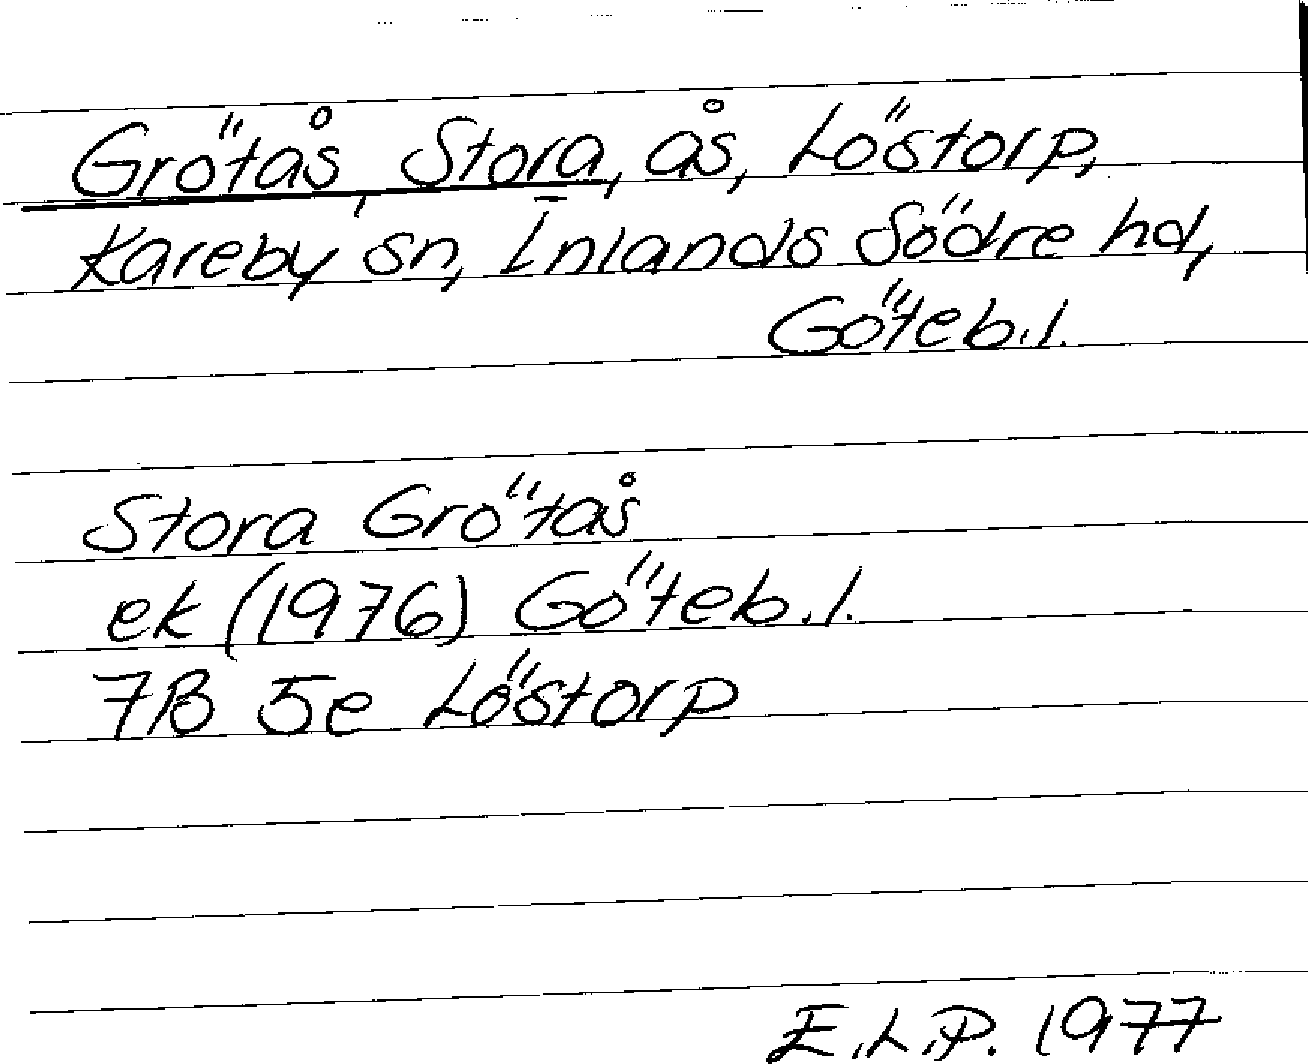 Grötås, Stora, ås, Löstorp,
Kareby sn, Inlands Södre hd,
Göteb.l.
Stora Grötås
ek (1976) Göteb.l.
7B 5e Löstorp
E.L.P. 1977